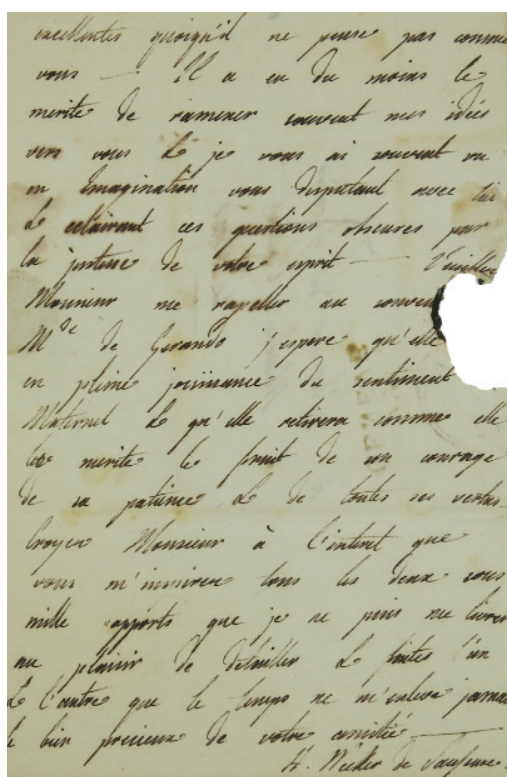 excellentes quoiqu'il ne pense pas comme
vous — Il a eu du moins le
merite de ramener souvent mes idées
vers vous & je vous ai souvent vu
en Imagination vous disputant avec lui
& eclairant ces questions obscures par
la justesse de votre esprit — Veuillez
Monsieur me rapeller au souven
M.de de Gerando j'espere qu'elle
en pleine jouissance du sentiment
Maternel & qu'elle retirera comme elle
le merite le fruit de son courage
de sa patience & de toutes ses vertus
Croyez Monsieur à l'interet que
vous m'inspirez tous les deux sous
mille rapports que je ne puis me livrer
au plaisir de detailler & faites l'un
& l'autre que le temps ne m'enleve jamais
le bien precieux de votre amitié —
Necker de Saussure